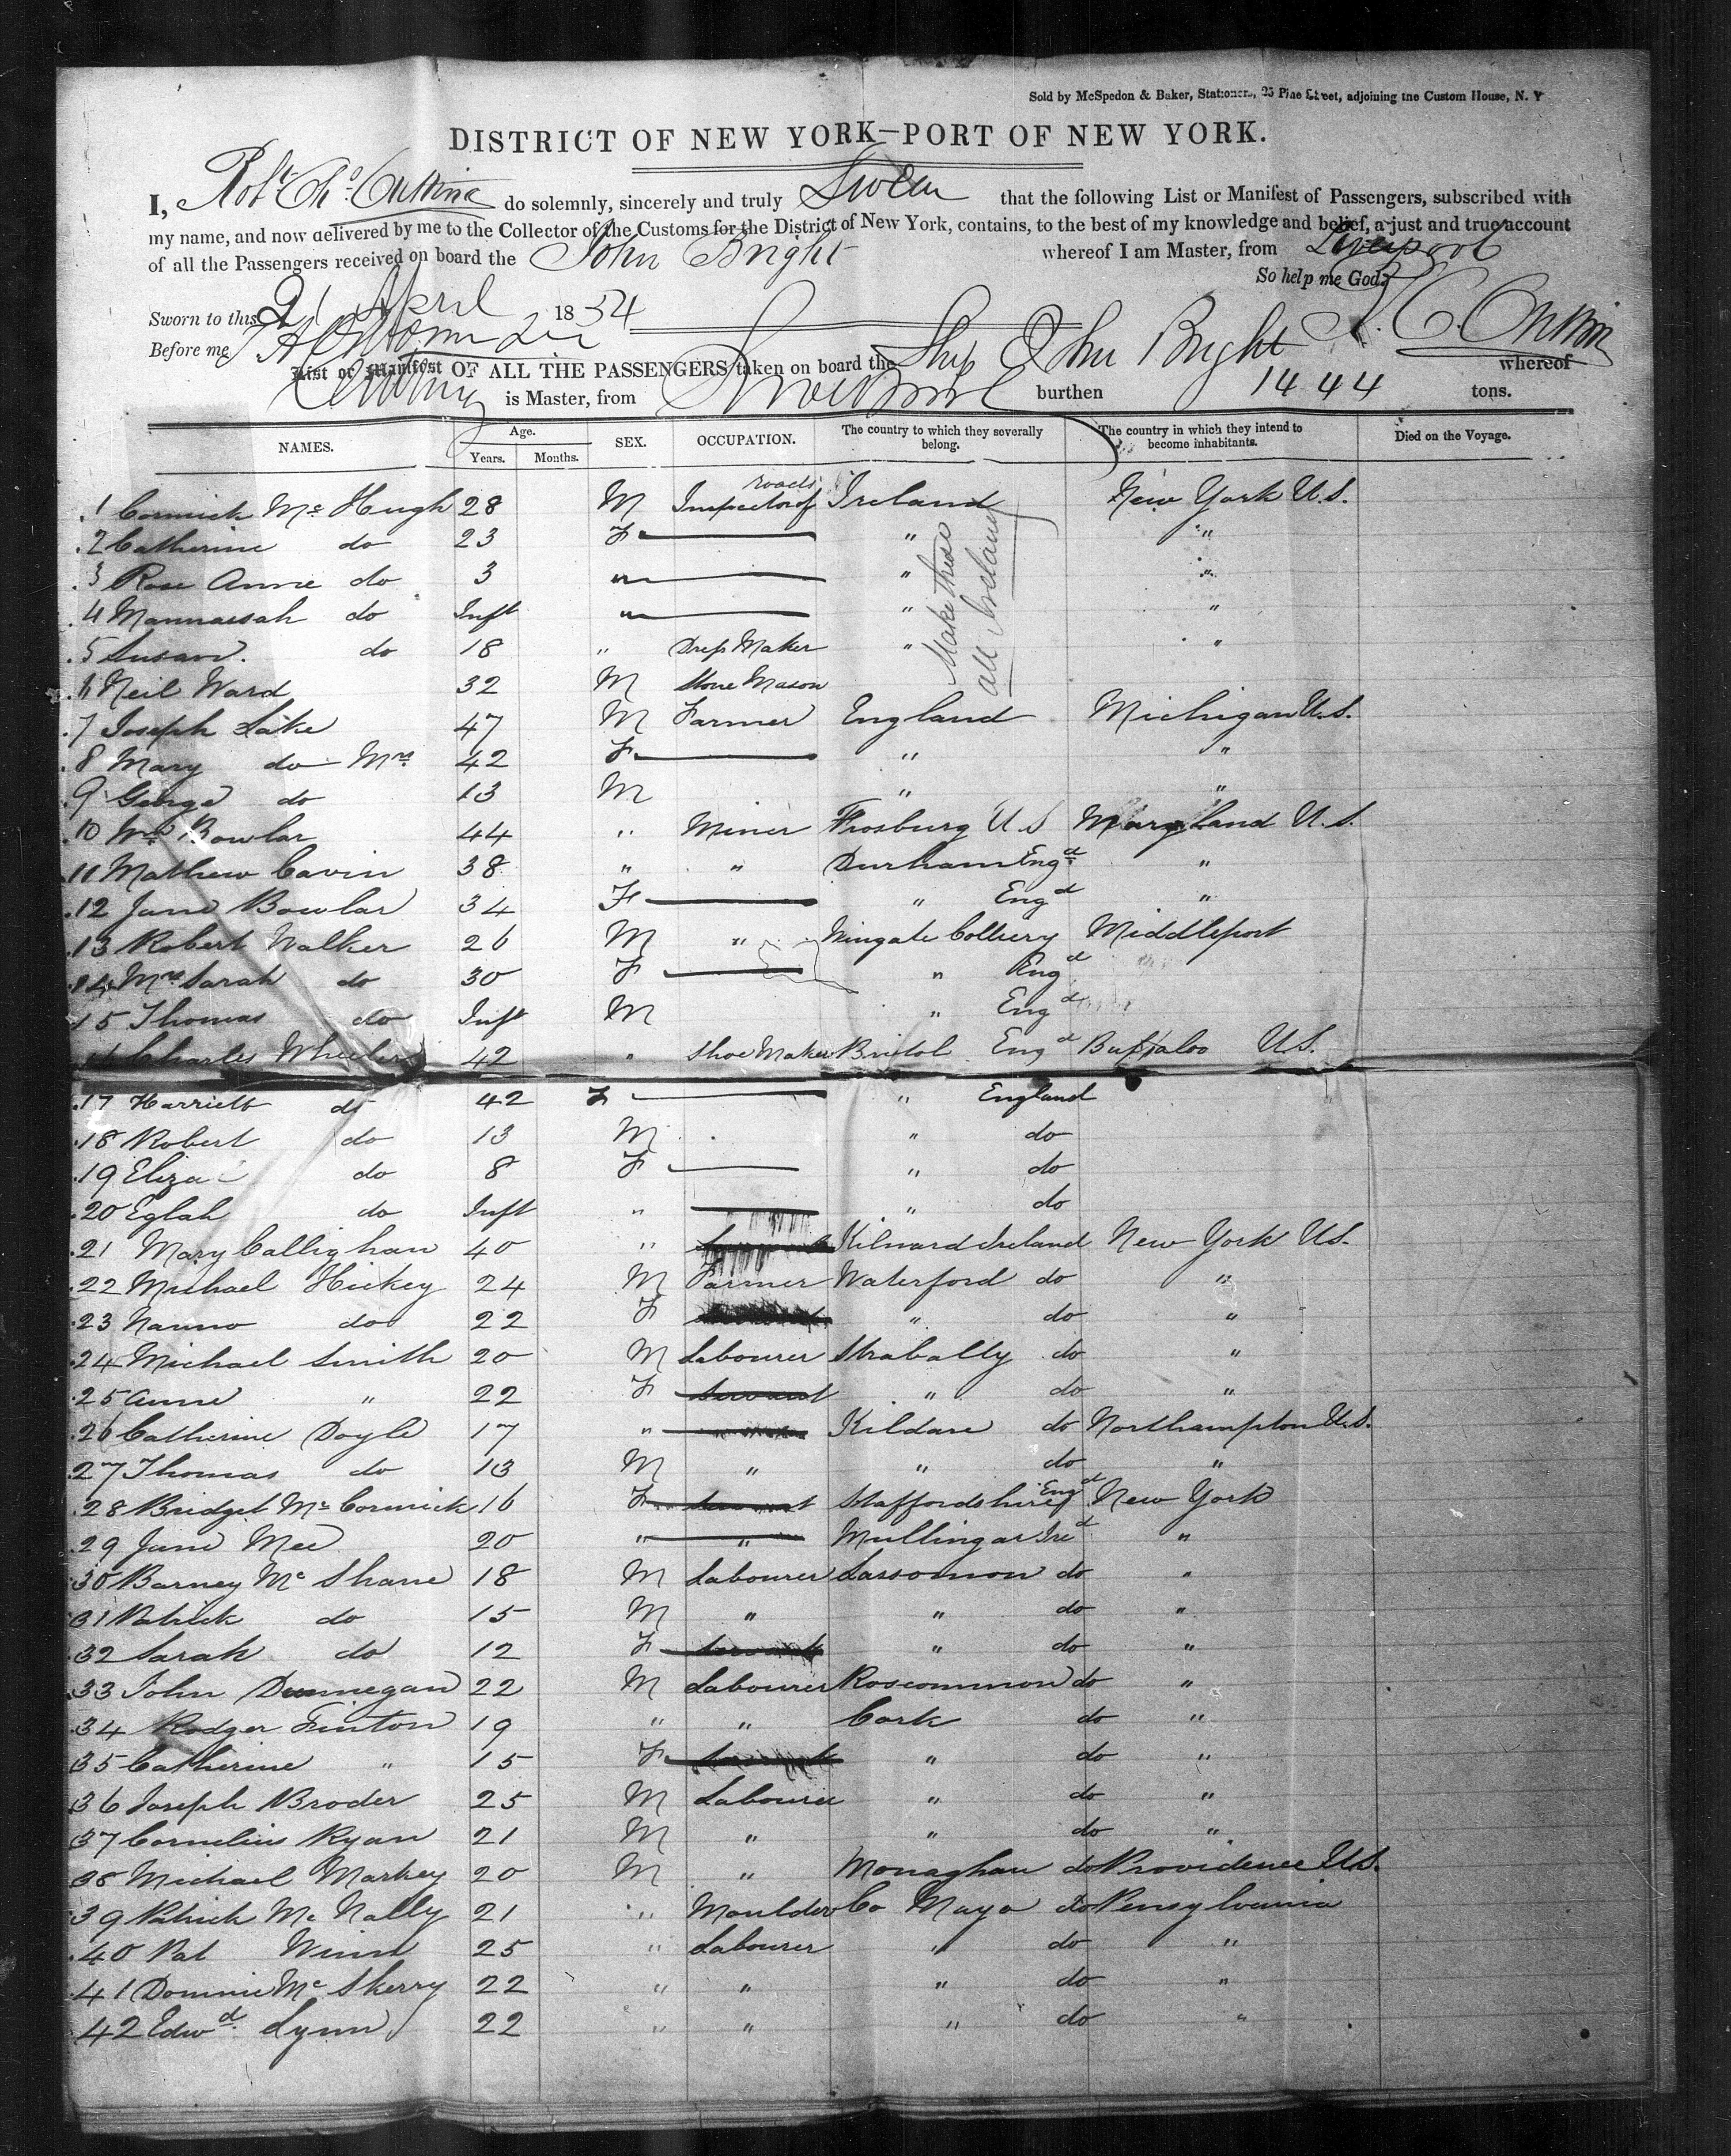 Sold by McSpedon & Baker, Stationers, 25 Pine Street, adjoining the Custom House, N. Y
DISTRICT OF NEW YORK—PORT OF NEW YORK.
I, Robt Chs. Cutting do solemnly, sincerely and truly Swear that the following List or Manifest of Passengers, subscribed with
my name, and now delivered by me to the Collector of the Customs for the District of New York, contains, to the best of my knowledge and belief, a just and true account
of all the Passengers received on board the John Bright whereof I am Master, from Liverpool
So help me God.
Sworn to this 21 April 1854
Before me
List or Manifest OF ALL THE PASSENGERS taken on board the Ship John Bright whereof
Cutting is Master, from Liverpool burthen 1444 tons.
NAMES. Age. Years. Months. SEX. OCCUPATION. The country to which they severally belong. The country in which they intend to become inhabitants. Died on the Voyage.
1 Cormick Mc Hugh 28 M Inspector of roads Ireland New York U.S.
2 Catherine do 23 F — " "
3 Rose Anne do 3 " — " "
4 Mannassah do Inft " — " "
5 Susan do 18 " Dress Maker " "
Make these all Ireland
6 Neil Ward 32 M Stone Mason
7 Joseph Lake 47 M Farmer England Michigan U.S.
8 Mary do Mrs 42 F — " "
9 George do 13 M " "
10 Wm Bowlar 44 " Miner Frosburg U S Maryland U.S.
11 Mathew Cavin 38 " " Durham Engd "
12 Jane Bowlar 34 F — " Engd "
13 Robert Walker 26 M " Wingate Colliery Middleport
14 Mrs Sarah do 30 F — " Engd
15 Thomas do Inft M " Engd
16 Charles Wheeler 42 " Shoe Maker Bristol Engd Buffaloo U.S.
17 Harriett do 42 F — " England
18 Robert do 13 M " do
19 Eliza do 8 F — " do
20 Eglah do Inft " — " do
21 Mary Callighan 40 " Kilnard Ireland New York U.S.
22 Michael Hickey 24 M Farmer Waterford do "
23 Nanno do 22 F " do "
24 Michael Smith 20 M Labourer Strabally do "
25 Anne " 22 F servant " do "
26 Catherine Doyle 17 " — Kildare do Northampton U.S.
27 Thomas do 13 M " " do "
28 Bridget Mc Cormick 16 F servant Staffordshire Engd New York
29 Jane Mee 20 " " Mullingar Ired "
30 Barney Mc Shane 18 M Labourer do "
31 Patrick do 15 M " " do "
32 Sarah do 12 F servant " do "
33 John Dunnegan 22 M Labourer Roscommon do "
34 Rodger Finton 19 " " Cork do "
35 Catherine " 15 F " do "
36 Joseph Broder 25 M Labourer " do "
37 Cornelius Ryan 21 M " " do "
38 Michael Markey 20 M " Monaghan do Providence U.S.
39 Patrick Mc Nally 21 " Moulder Co Mayo do Pensylvania
40 Pat Winn 25 " Labourer " do "
41 Dominic Mc Skerry 22 " " " do "
42 Edwd Lynn 22 " " " do "